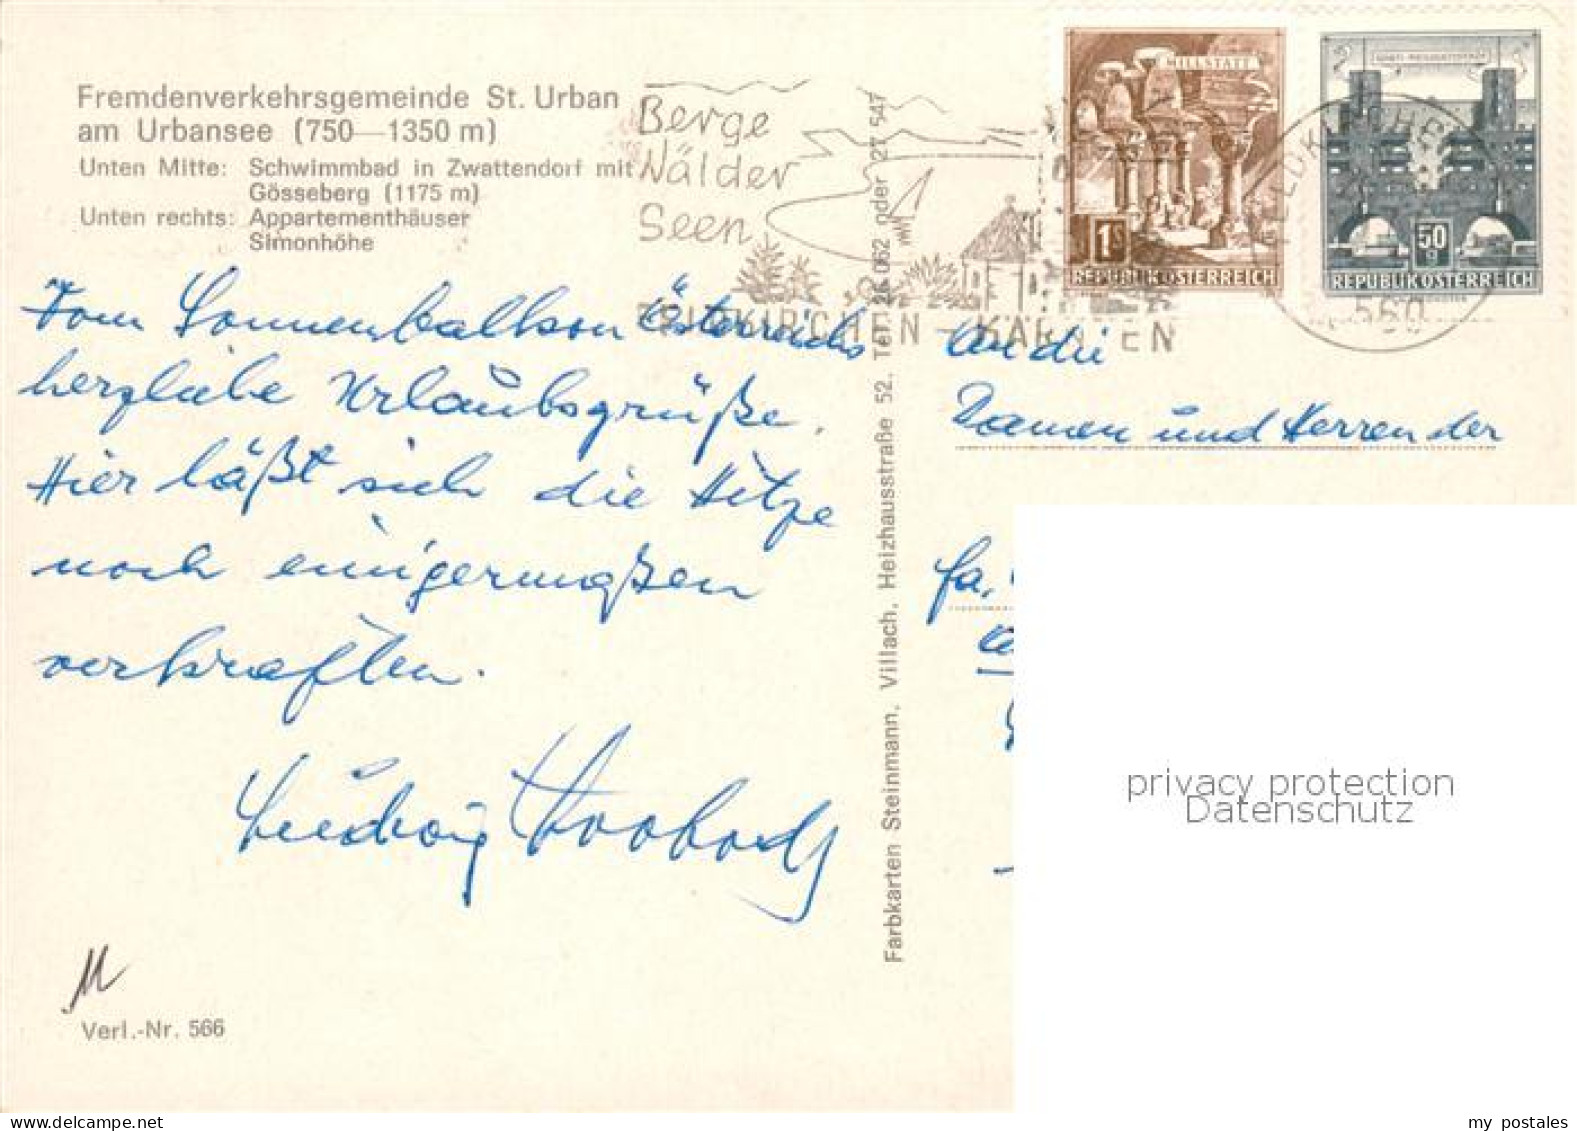 Fremdenverkehrsgemeinde St. Urban
am Urbansee (750—1350 m)
Unten Mitte: Schwimmbad in Zwattendorf mit
Gösseberg (1175 m)
Unten rechts: Appartementhäuser
Simonhöhe
Berge
Wälder
Seen
FELDKIRCHEN - KÄRNTEN
MILLSTATT
1S
REPUBLIK ÖSTERREICH
50 g
REPUBLIK ÖSTERREICH
560
Vom Sonnenbalkon Österreichs
herzliche Urlaubsgrüße.
Hier läßt sich die Hitze
noch einigermaßen
verkraften.
Ludwig
An die
Damen und Herren der
Fa.
Farbkarten Steinmann, Villach, Heizhausstraße 52. Tel. 062 oder 27 547
privacy protection
Datenschutz
Verl.-Nr. 566
www.delcampe.net
my_postales